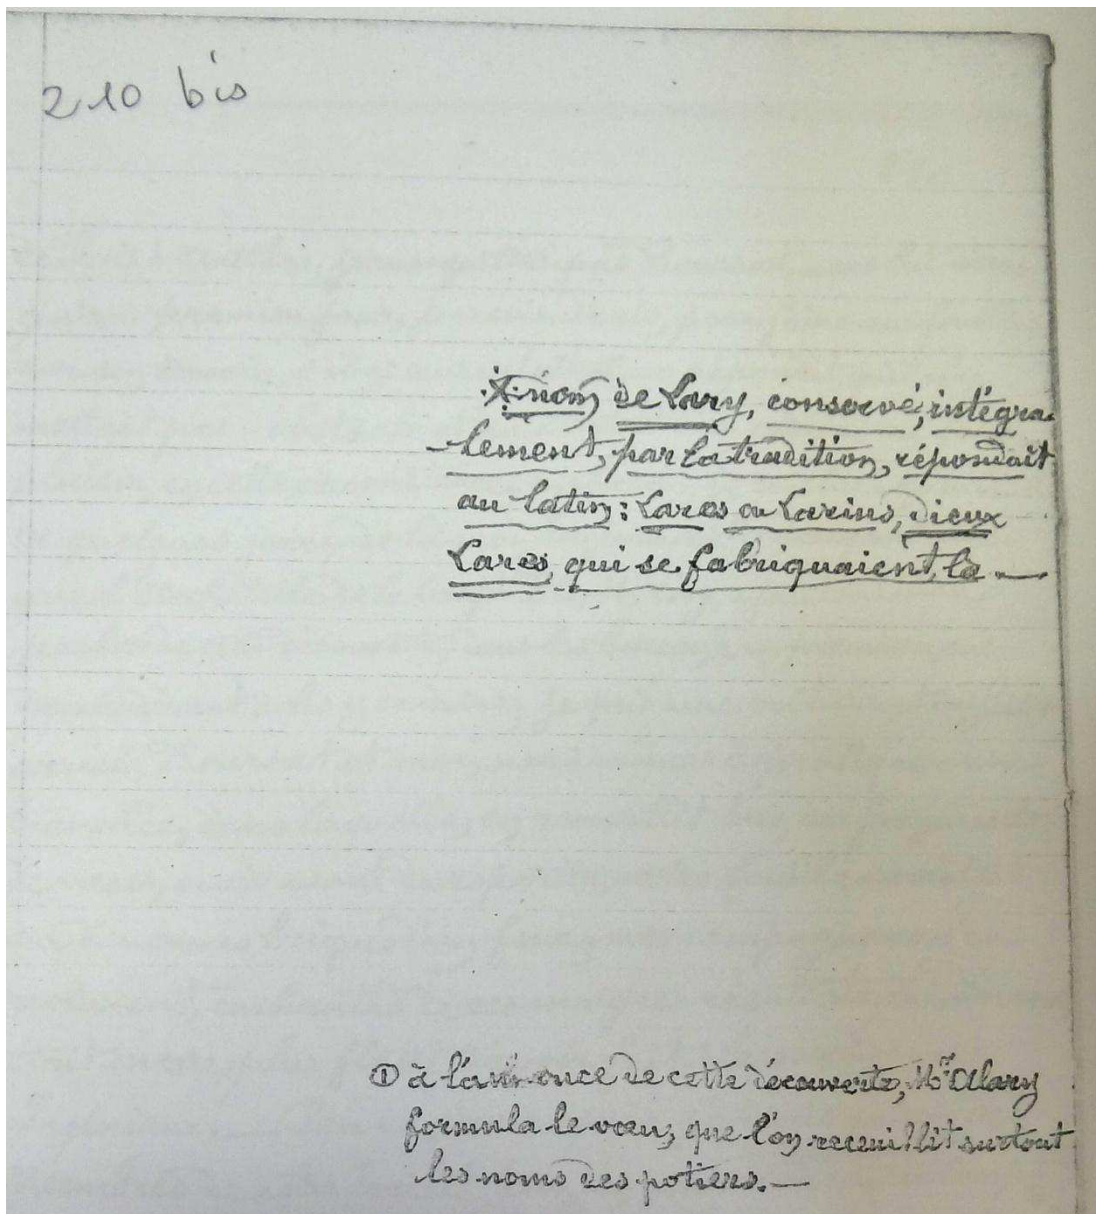 210 bis
nom de Lary, conservé, intégra-
-lement, par la tradition, répondait
au latin : Lares ou Larins, dieux
Lares, qui se fabriquaient, là. —
① à l'annonce de cette découverte, Mr Alary
formula le vœu, que l'on recueillit surtout
les noms des potiers. —